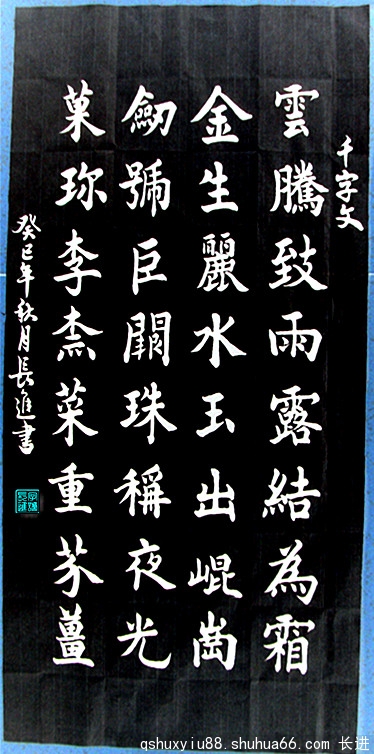 千字文
雲騰致雨露結為霜
金生麗水玉出崐崗
劔號巨闕珠稱夜光
菓珎李柰菜重芥薑
癸巳年秋月長進書
qshuxyiu88.shuhua66.com 长进